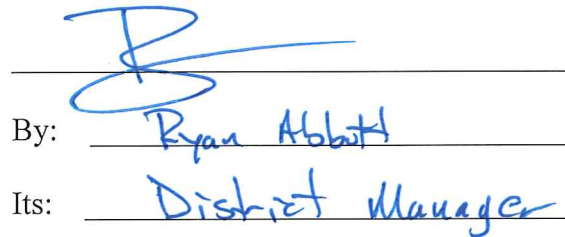 By: Ryan Abbott
Its: District Manager